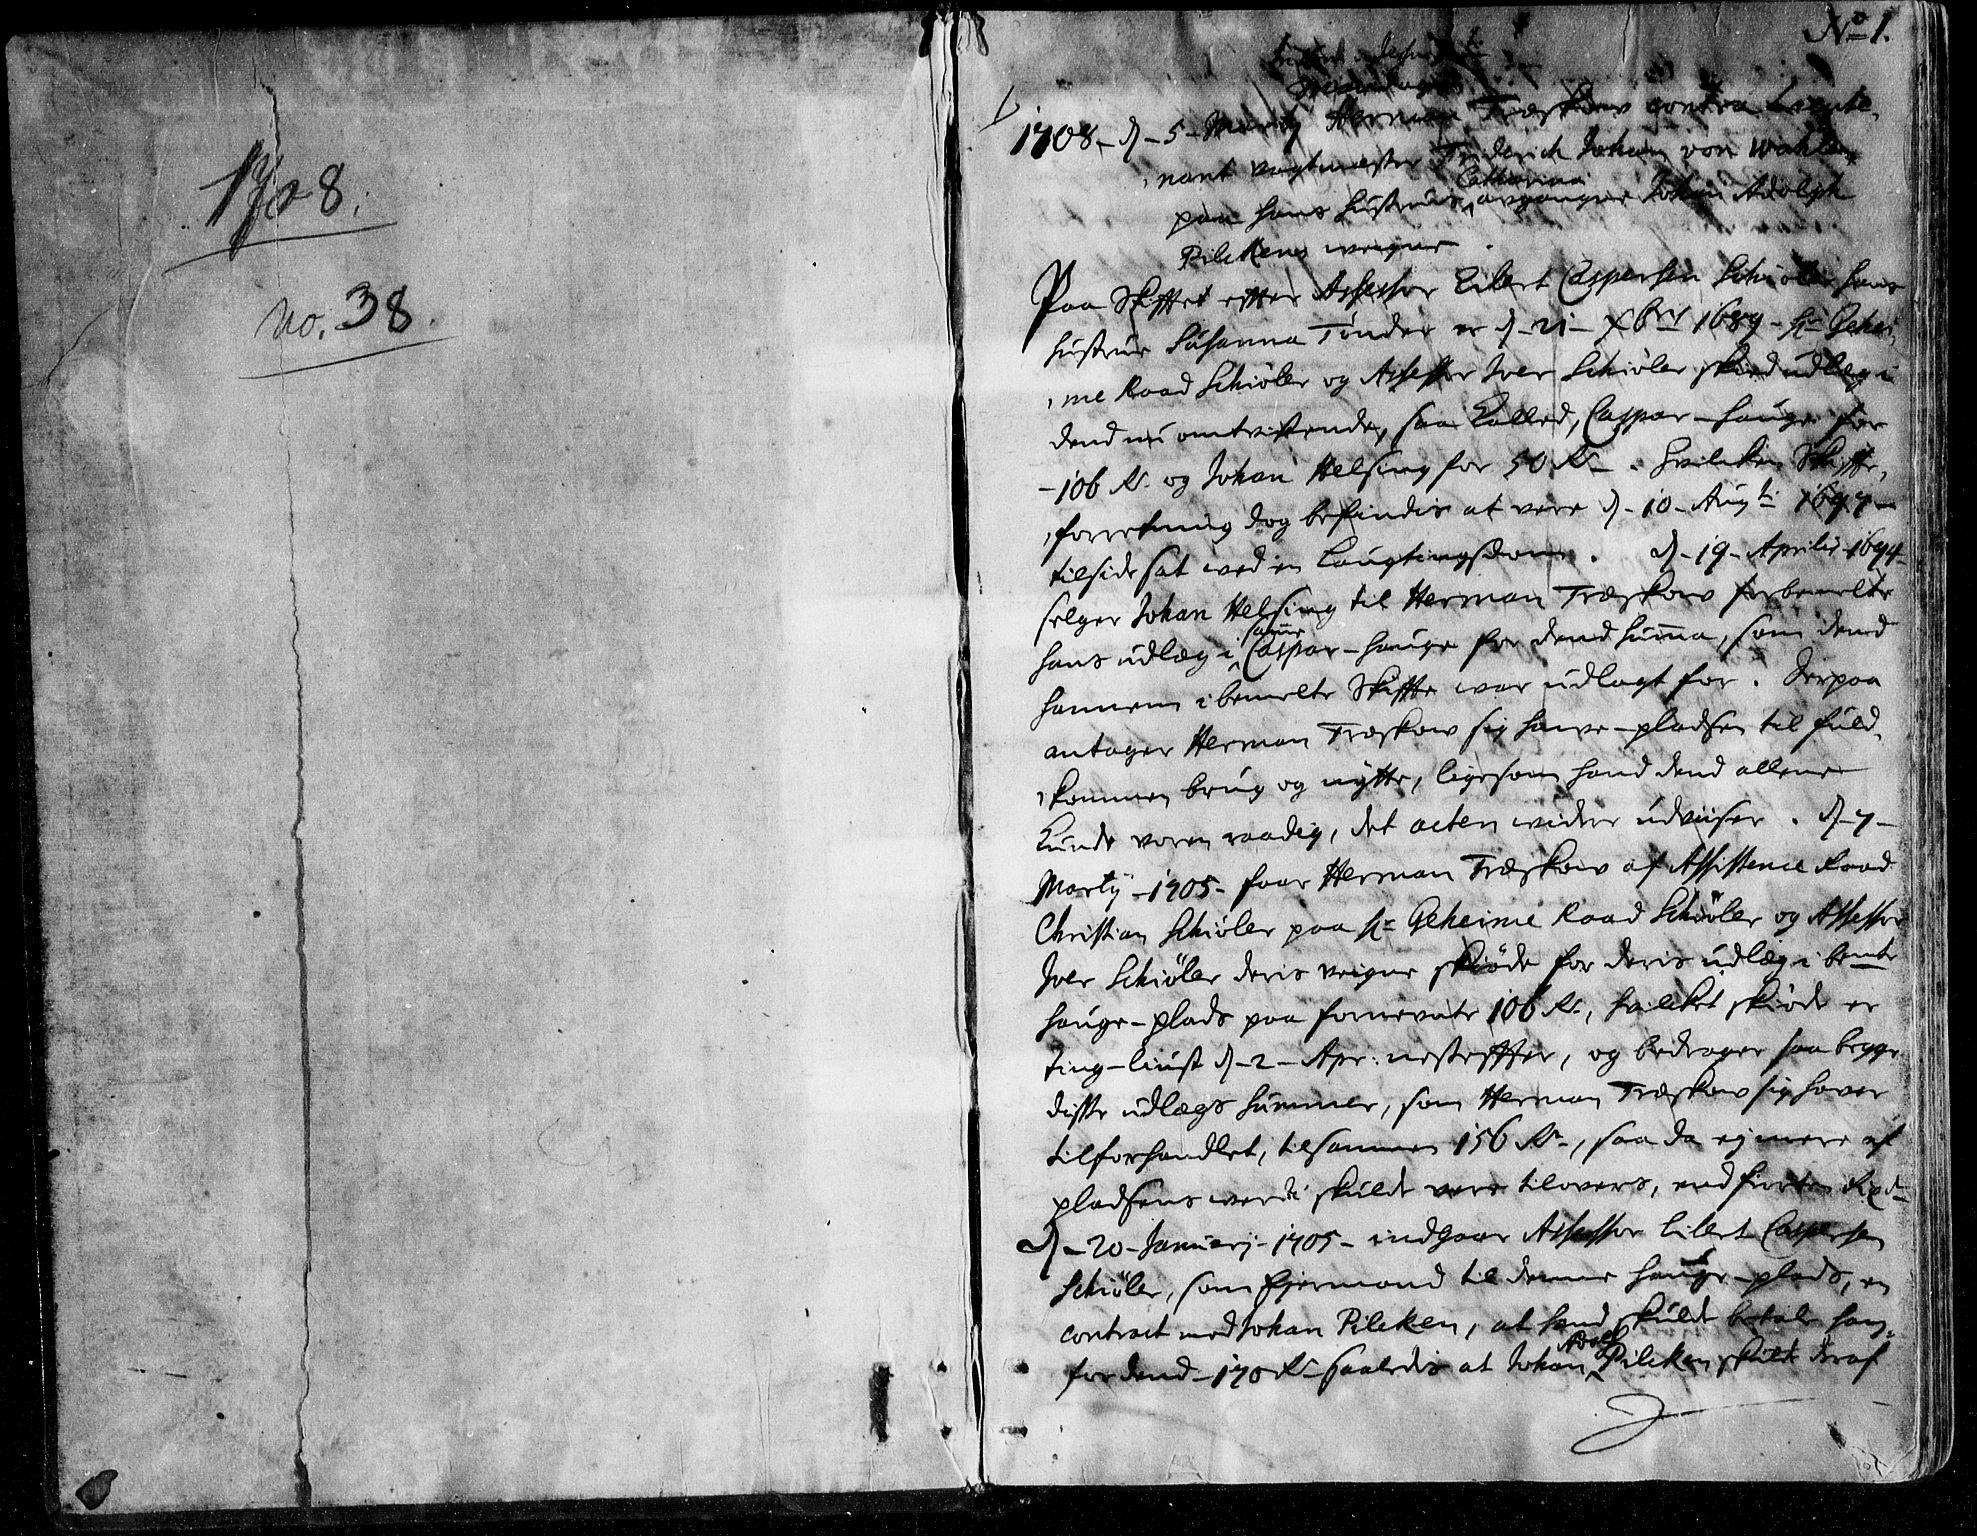 1708.
No. 38.
No 1.
1708 - d - 5 - Martij Herman Træskow contra Lieute,
nant vagtmester Friderich Johan von Wahlen
paa hans hustrues Catharina afgangne Johan Adolph
Pilckens weigne.
Paa Skifftet effter Assessor Eilert Caspersen Schiøler hans
hustrue Susanna Tønder er d - 21 - Xbris 1689 - Hr Gehei,
me Raad Schiøler og Assessor Iver Schiøler skeed udlæg i
dend nu omtvistende, saa kalled, Caspar-hauge for
- 106 Rr. og Johan Helsing for 50 Rr -. hvilcken Skiffte,
forretning dog befindis at være d - 10 - Augti 1697
tilside sat ved en Laugtingsdom. d - 19 - Aprilis 1694
selger Johan Helsing til Herman Træskow forbemelte
hans udlæg i samme Caspar-hauge for dend summa, som dend
hannem i bemelte Skiffte war udlagt for. Derpaa
antager Herman Træskow sig hauge-pladsen til fuld,
kommen brug og nytte, ligesom hand dend allene
kunde voren raadig, det acten widere udviiser. d - 7 -
Martij - 1705 - faar Herman Træskow af Assistence Raad
Christian Schiøler paa Hr Geheime Raad Schiøler og Assessor
Iver Schiøler deris veigne skiøde for deris udlæg i bemte
hauge-plads paa fornevnte 106 Rr, hvilcket skiøde er
ting-liust d - 2 - Apr: nesteffter, og bedrager saa begge
disse udlægs summer, som Herman Træskow sig haver
tilforhandlet, tilsammen 156 Rr -, saa da ej mere af
pladsens werdi skulde være tilovers, end fiorten Rixd
d - 20 - Januarij - 1705 - indgaar Assessor Eilert Caspersen
Schiøler, som Ejermand til denne hauge-plads, en
contract med Johan Pilcken, at hand skulde betale ham
for dend - 170 Rr - saaledis at Johan Adolf Pilcken skulde deraf